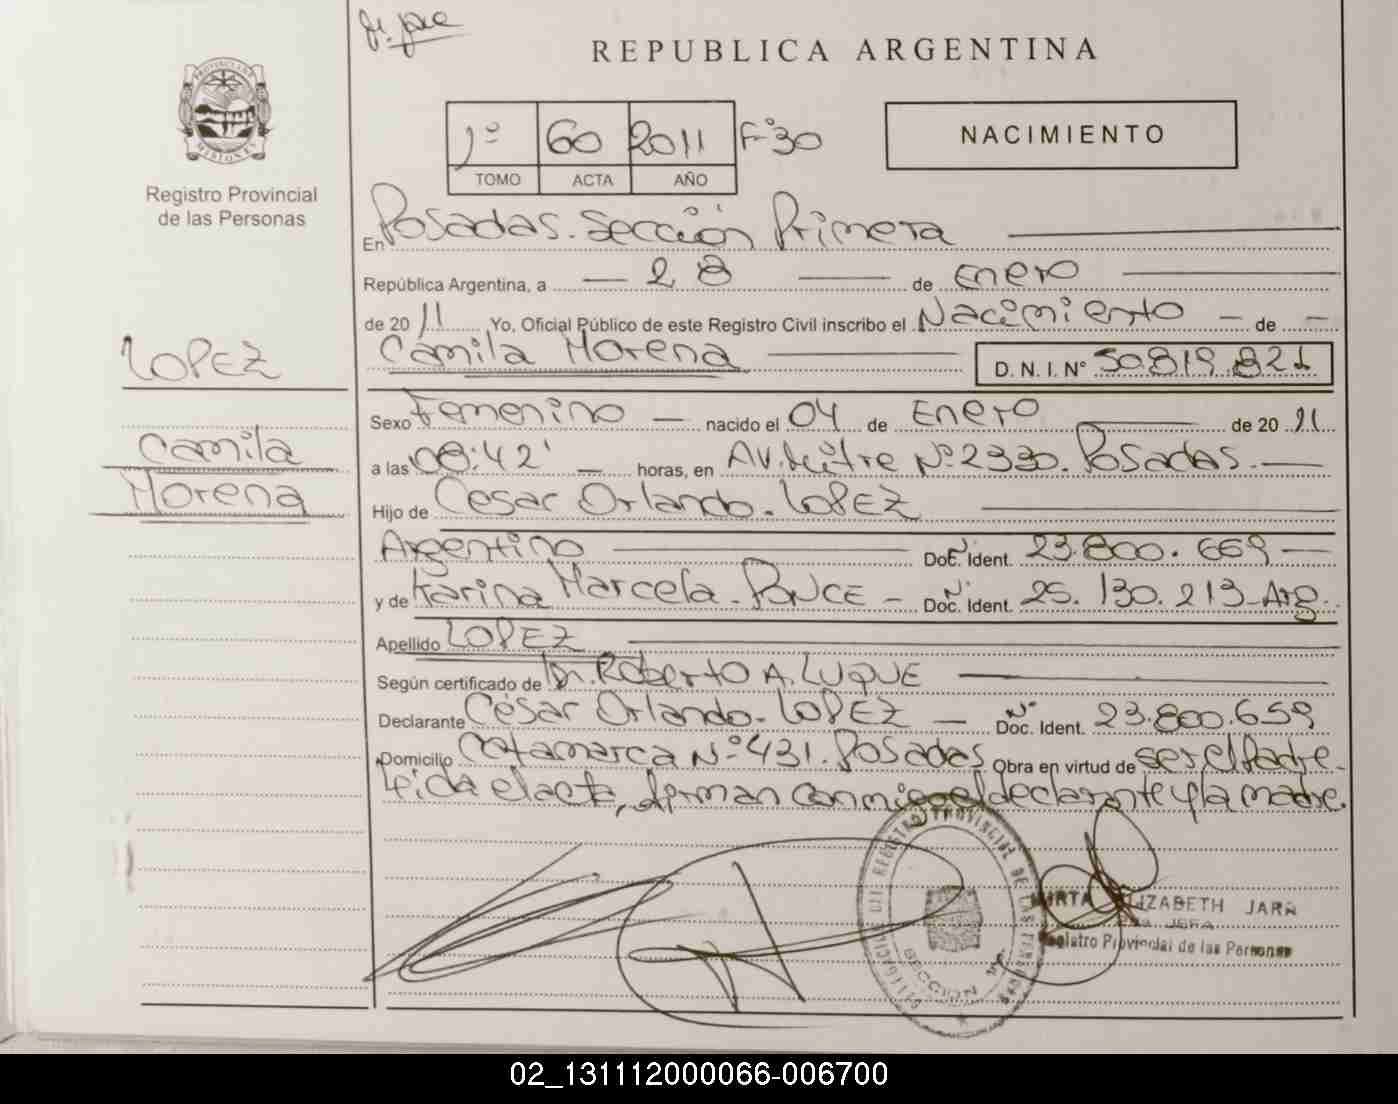 REPUBLICA ARGENTINA
PROVINCIA DE MISIONES
Registro Provincial
de las Personas
1º 60 2011 Fº30
TOMO ACTA AÑO
NACIMIENTO
En Posadas. Sección Primera
República Argentina, a 28 de Enero
de 2011 Yo, Oficial Público de este Registro Civil inscribo el Nacimiento de
Camila Morena D. N. I. Nº 50.819.821
LOPEZ
Camila
Morena
Sexo Femenino nacido el 04 de Enero de 2011
a las 08:42' horas, en Av. Mitre Nº 2330. Posadas.
Hijo de Cesar Orlando. LOPEZ
Argentino Doc. Ident. Nº 23.800.659
y de Karina Marcela. PONCE Doc. Ident. Nº 25.130.213-Arg.
Apellido LOPEZ
Según certificado de Dr. Roberto A. LUQUE
Declarante César Orlando. LOPEZ Doc. Ident. Nº 23.800.659
Domicilio Catamarca Nº 431. Posadas Obra en virtud de ser el Padre.
Leida el acta, firman conmigo el declarante y la madre.
REGISTRO PROVINCIAL DE LAS PERSONAS
SECCION 1º
MIRTA ELIZABETH JARA
JEFA
Registro Provincial de las Personas
02_131112000066-006700